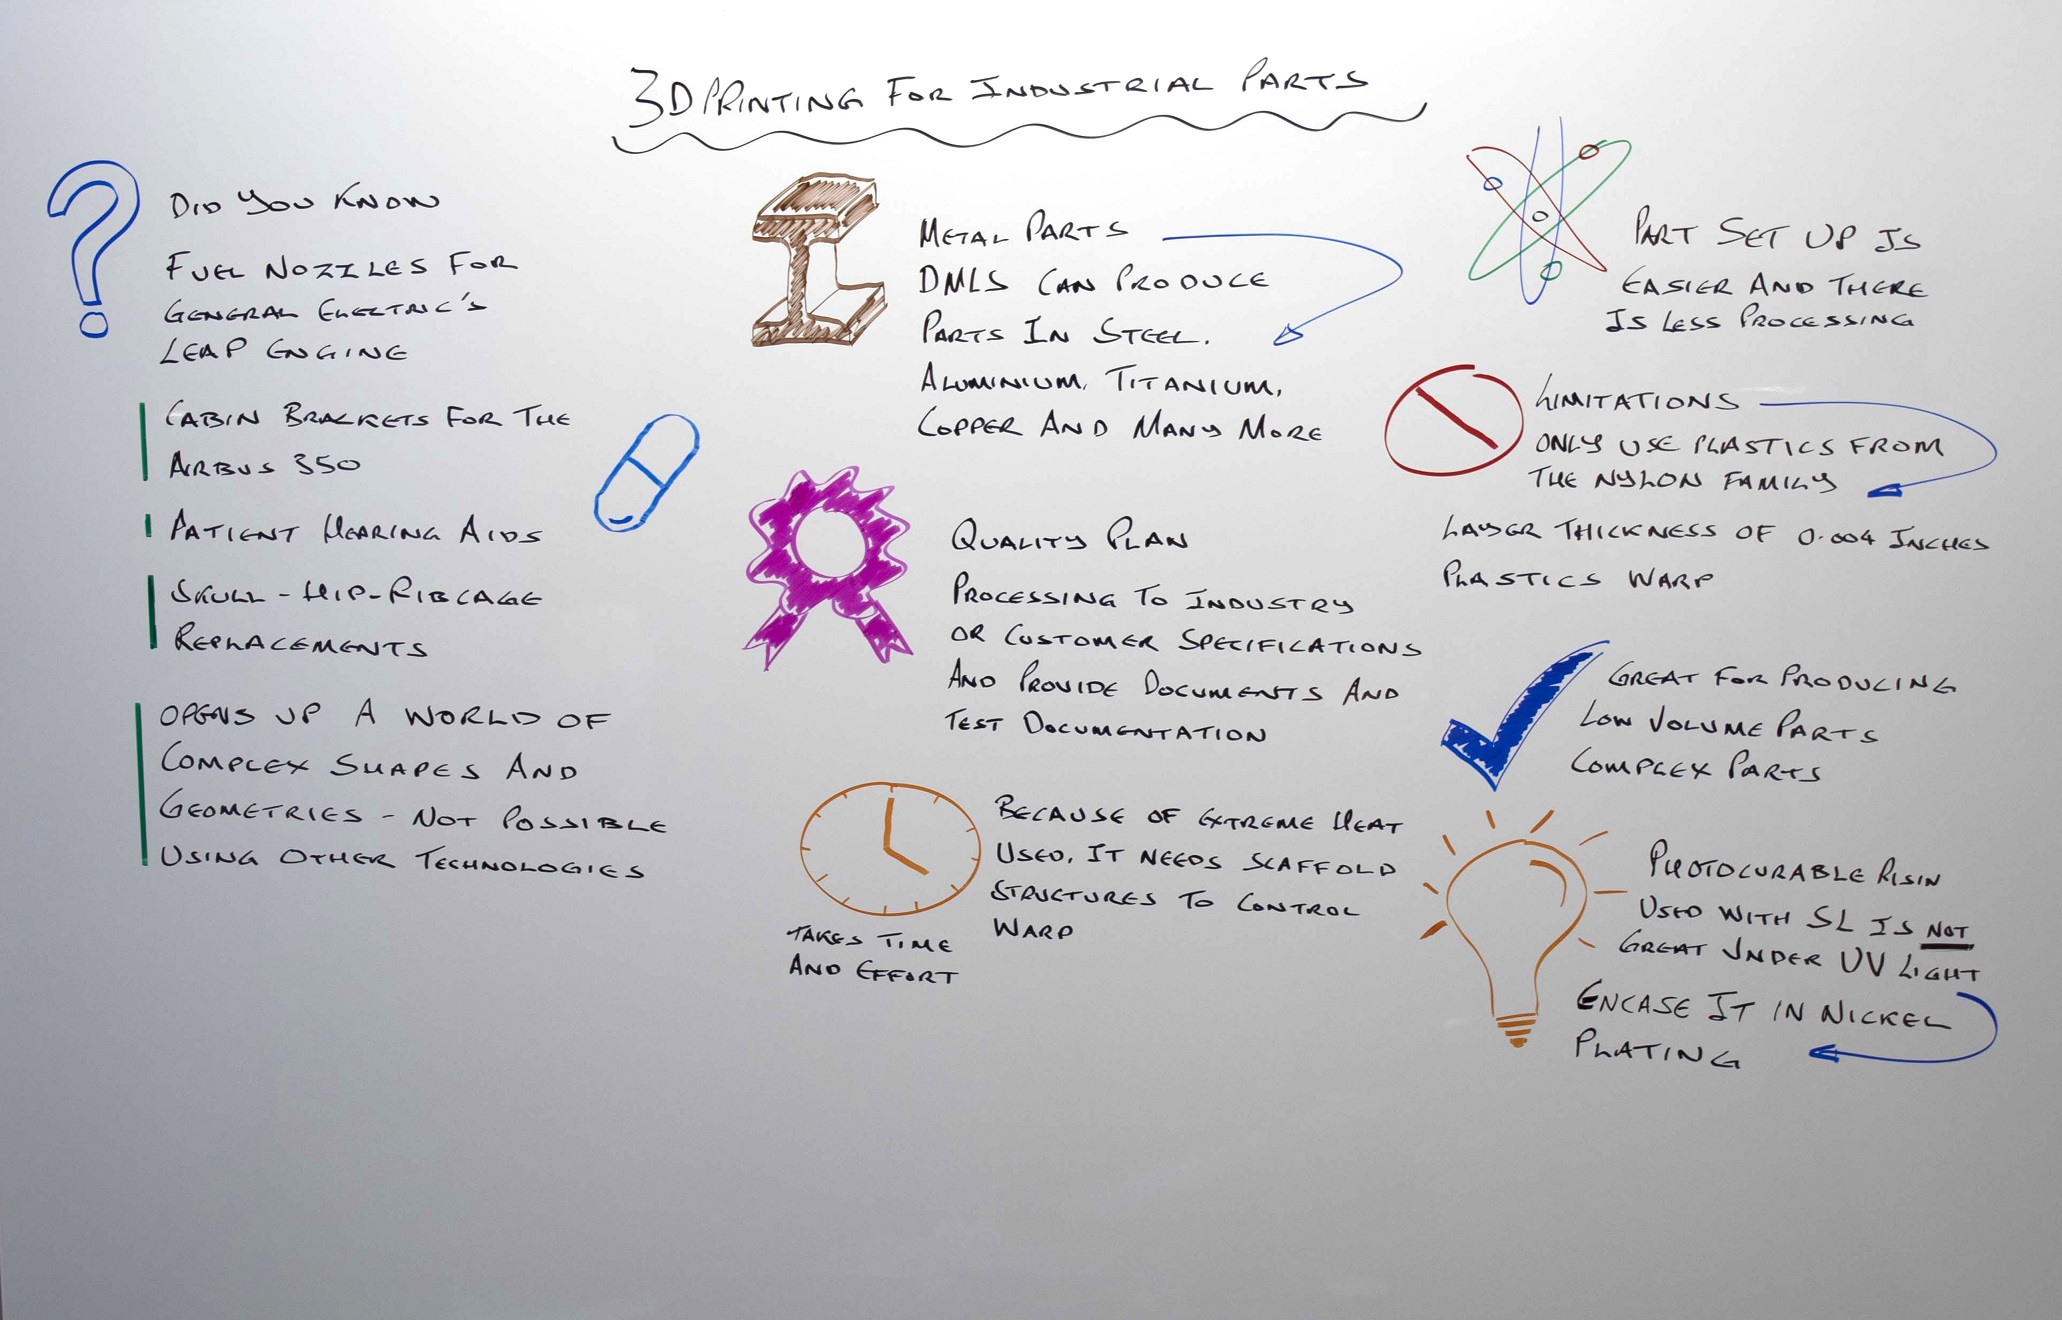 3D PRINTING FOR INDUSTRIAL PARTS
DID YOU KNOW
FUEL NOZZLES FOR
GENERAL ELECTRIC'S
LEAP ENGINE
CABIN BRACKETS FOR THE
AIRBUS 350
PATIENT HEARING AIDS
SKULL - HIP - RIBCAGE
REPLACEMENTS
OPENS UP A WORLD OF
COMPLEX SHAPES AND
GEOMETRIES - NOT POSSIBLE
USING OTHER TECHNOLOGIES
METAL PARTS
DMLS CAN PRODUCE
PARTS IN STEEL.
ALUMINIUM, TITANIUM,
COPPER AND MANY MORE
QUALITY PLAN
PROCESSING TO INDUSTRY
OR CUSTOMER SPECIFICATIONS
AND PROVIDE DOCUMENTS AND
TEST DOCUMENTATION
BECAUSE OF EXTREME HEAT
USED, IT NEEDS SCAFFOLD
STRUCTURES TO CONTROL
WARP
TAKES TIME
AND EFFORT
PART SET UP IS
EASIER AND THERE
IS LESS PROCESSING
LIMITATIONS
ONLY USE PLASTICS FROM
THE NYLON FAMILY
LAYER THICKNESS OF 0.004 INCHES
PLASTICS WARP
GREAT FOR PRODUCING
LOW VOLUME PARTS
COMPLEX PARTS
PHOTOCURABLE RISIN
USED WITH SL IS NOT
GREAT UNDER UV LIGHT
ENCASE IT IN NICKEL
PLATING